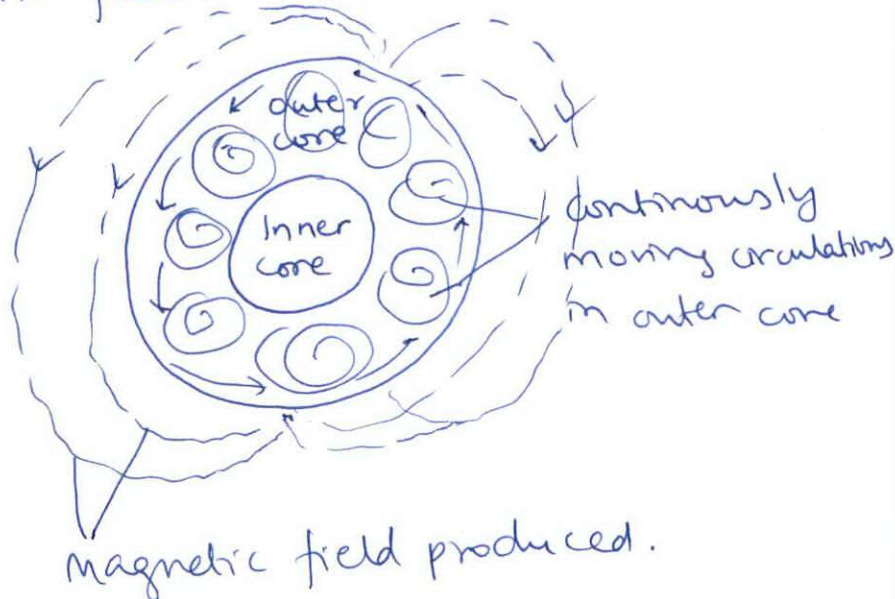 outer
core
Inner
core
Continously
moving circulations
in outer core
Magnetic field produced.